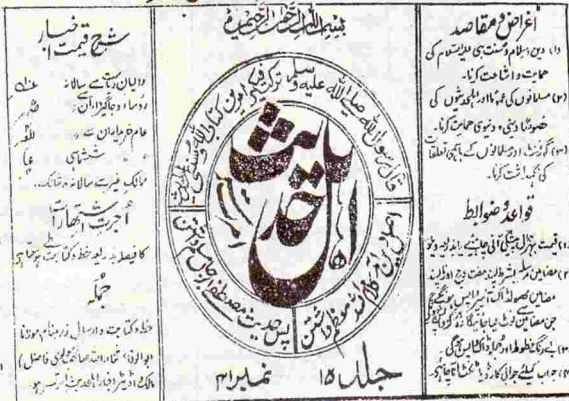 بسم الله الرحمن الرحيم
اغراض و مقاصد
(۱) دین اسلام و سنت نبی علیہ السلام کی
حمایت و اشاعت کرنا۔
(۲) مسلمانوں کی عموماً اور اہلحدیثوں کی
خصوصاً دینی و دنیوی خدمت کرنا۔
(۳) گورنمنٹ اور مسلمانوں کے باہمی تعلقات
کی نگہداشت کرنا۔
قواعد و ضوابط
(۱) قیمت بہرحال پیشگی آنی چاہئے
(۲) مضامین مرسلہ بشرط پسند مفت درج
جن مضامین سے نوٹ لیا جائیگا وہ
(۳) بیرنگ خطوط اور
(۴) جواب کیلئے جوابی کارڈ یا ٹکٹ آنا چاہئے۔
قال رسول الله صلے الله علیه وسلم ترکت فیکم امرین کتاب الله وسنتی
اہل حدیث
اصل دین آمد کلام اللہ معظم داشتن
پس حدیث مصطفےٰ بر جان مسلم داشتن
جلد ۱۵
نمبر ۴۱
شرح قیمت اخبار
والیان ریاست سے سالانہ
رؤساء و جاگیرداران سے
عام خریداران سے
ششماہی
ممالک غیر سے سالانہ
اجرت اشتہارات
کا فیصلہ بذریعہ خط و کتابت ہو سکتا ہے
جملہ
خط و کتابت و ارسال زر بنام مولانا
ابوالوفاء ثناءاللہ صاحب (مولوی فاضل)
مالک و اڈیٹر اخبار اہلحدیث امرتسر ہو۔